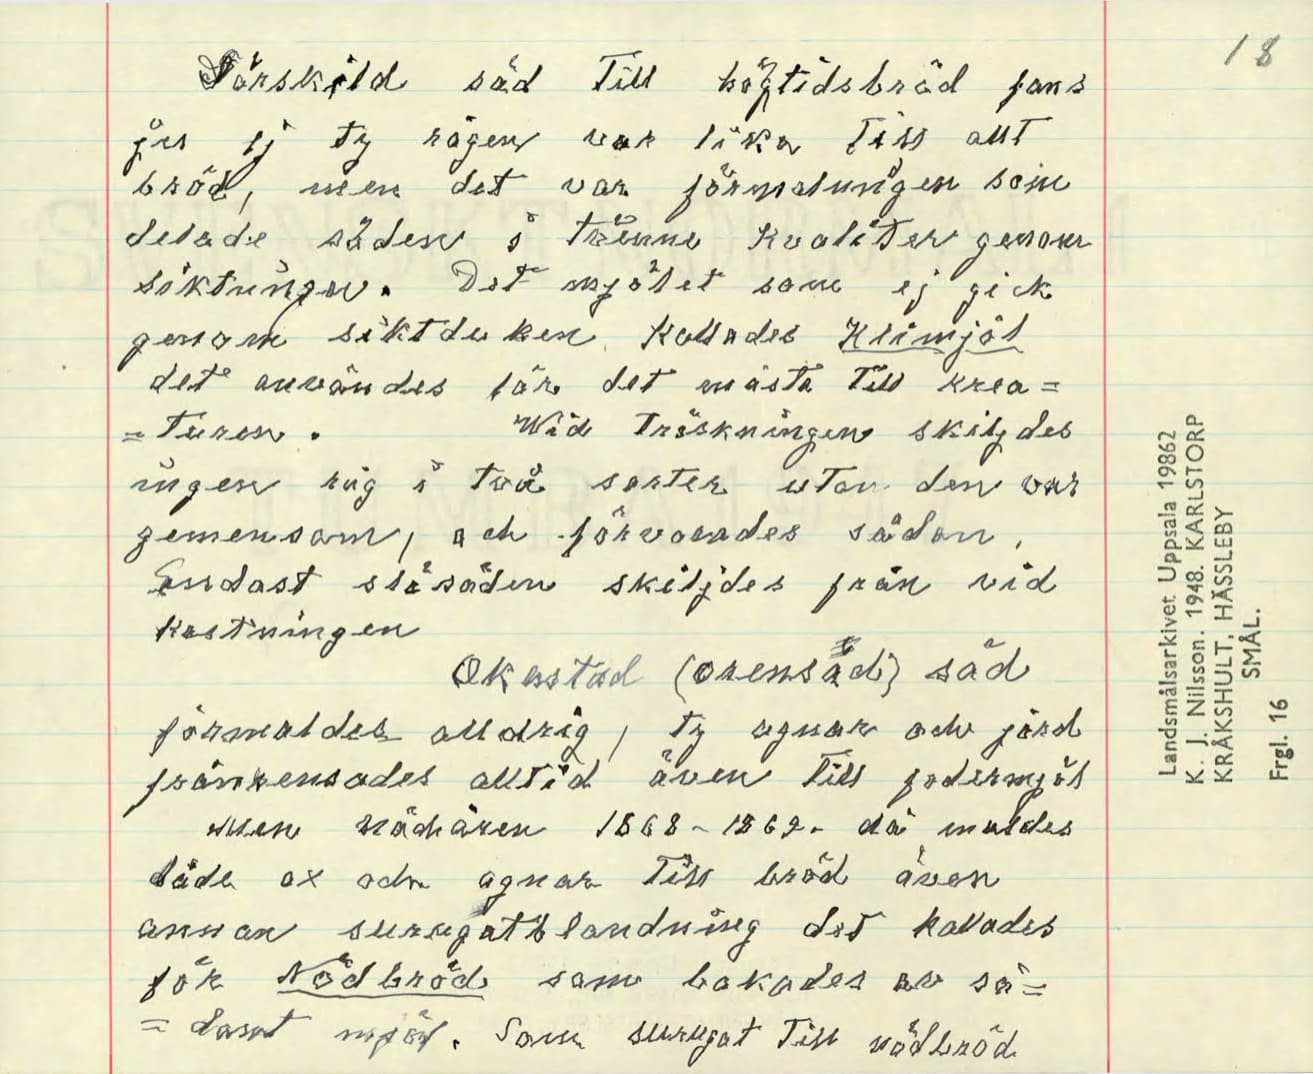 18
Särskild säd Till högtidsbröd fans
ju ej ty rågen var lika Till allt
bröd, men det var förmalningen som
delade säden i tränne kvaliter genom
siktningen. Det mjölet som ej gick
genom siktduken kallades Klimjöl
det användes för det mästa Till krea=
=turen. Wid Tröskningen skiljdes
ingen råg i två sorter utan den var
gemensam, och förvarades sådan,
Endast slösäden skiljdes från vid
kastningen
Okastad (orensad) säd
förmaldes alldrig, ty agnar och jord
frånrensades alltid även Till fodermjöl
Men Nödåren 1868-1869. då maldes
både ax och agnar Till bröd även
annan surugatblandning det kallades
för Nödbröd som bakades av så=
=dant mjöl. Som surugat Till nödbröd
Landsmålsarkivet Uppsala 19862
K. J. Nilsson. 1948. KARLSTORP
KRÅKSHULT, HÄSSLEBY
SMÅL.
Frgl. 16